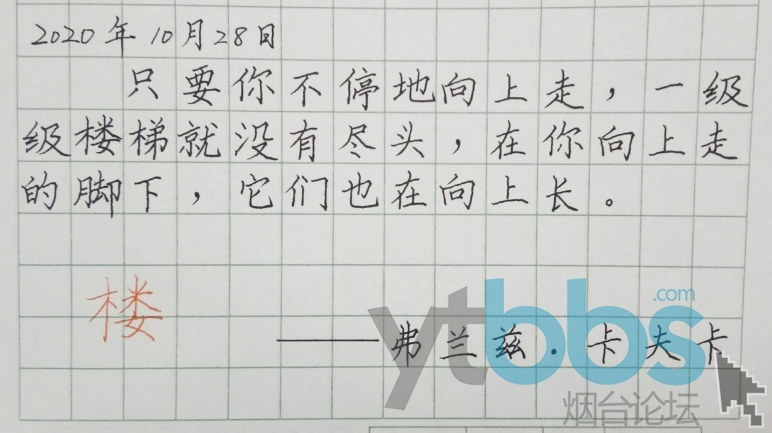 2020年10月28日
只要你不停地向上走，一级
级楼梯就没有尽头，在你向上走
的脚下，它们也在向上长。
楼
——弗兰兹.卡夫卡
ytbbs.com
烟台论坛